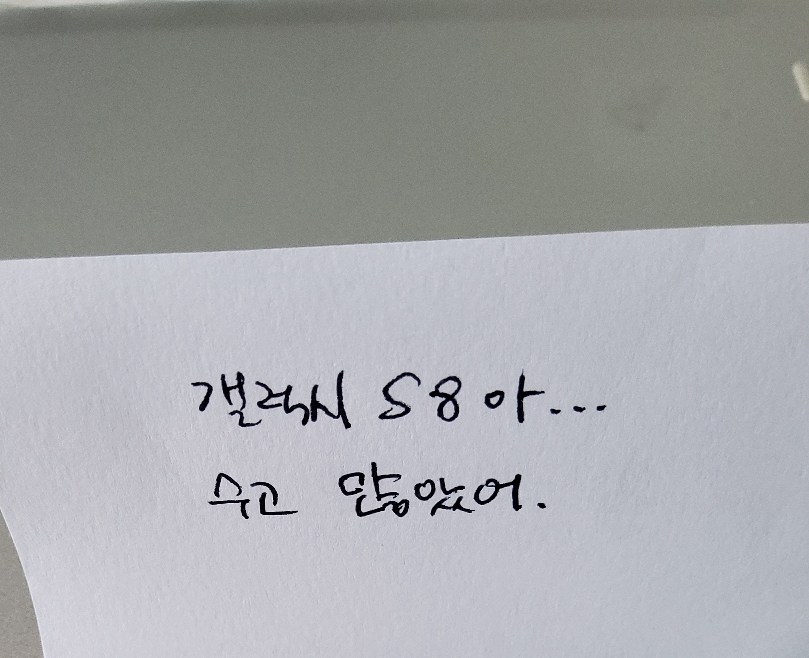 갤럭시 S8아...
수고 많았어.